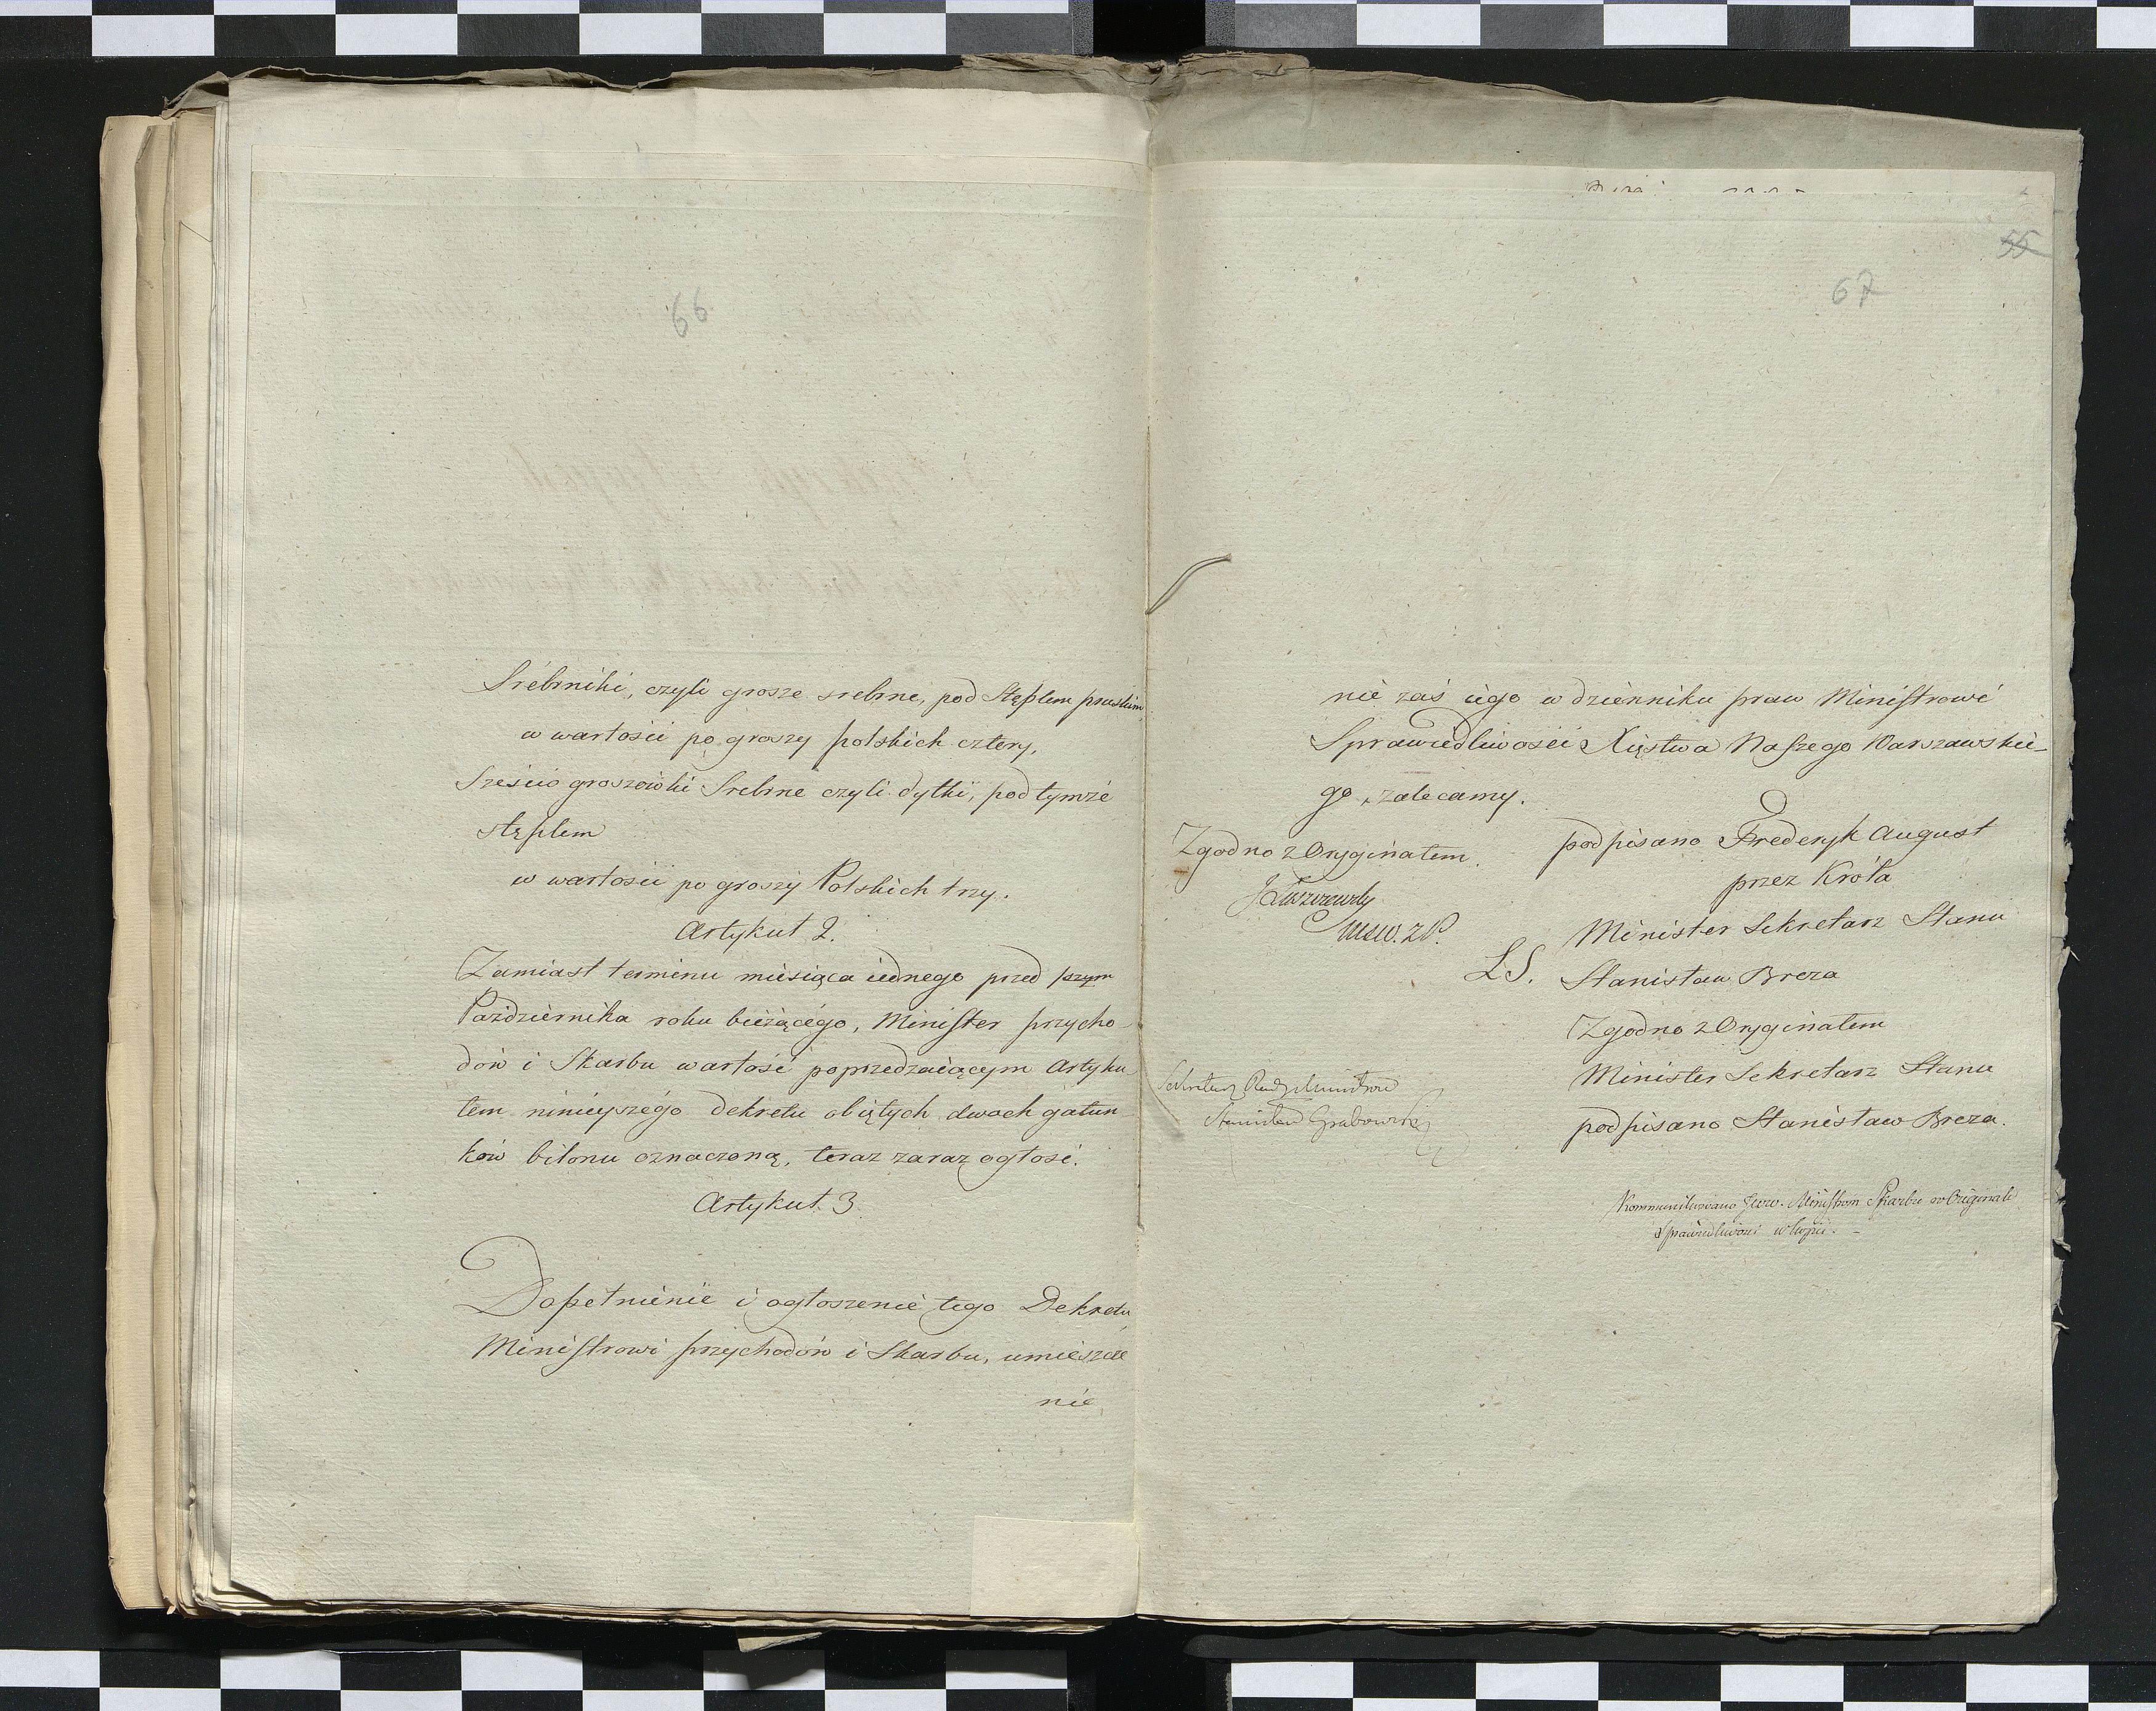 66
Srébrniki, czyli grosze srebrne, pod Stęplem pruskim
w wartości po groszy polskich cztery,
Sześcio groszowki Srebrne czyli dytki, pod tymże
stęplem
w wartości po groszy Polskich trzy.
Artykuł 2.
Zamiast terminu miesiąca iednego przed 1szym
Październíka roku bieżącégo, Minister przycho-
dów i Skarbu wartość poprzedzaiącym Artyku
łem ninieyszégo dekretu obiętych dwóch gatun
ków bilonu oznaczoną, teraz zaraz ogłosi.
Artykuł. 3
Dopełnienie i ogłoszenie tego Dekretu
Ministrowi przychodów i Skarbu, umieszcze
nie
55
67
nie zaś iego w dzienniku praw Ministrowi
Sprawiedliwości Xięstwa Naszego Warszawskie-
go, zalecamy.
Zgodno z Oryginałem.
podpisano Frederyk August
przez Króla
Minister Sekretarz Stanu
LS. Stanisław Breza
Zgodno z Oryginałem
Minister Sekretarz Stanu
podpisano Stanisław Breza.
J Łuszczewsky
Msw. z P.
Sekretarz Rady Ministrów
Stanisław Grabowski
Kommunikowano JWW. Ministrom Skarbu w Originale
Sprawiedliwości w kopii. -